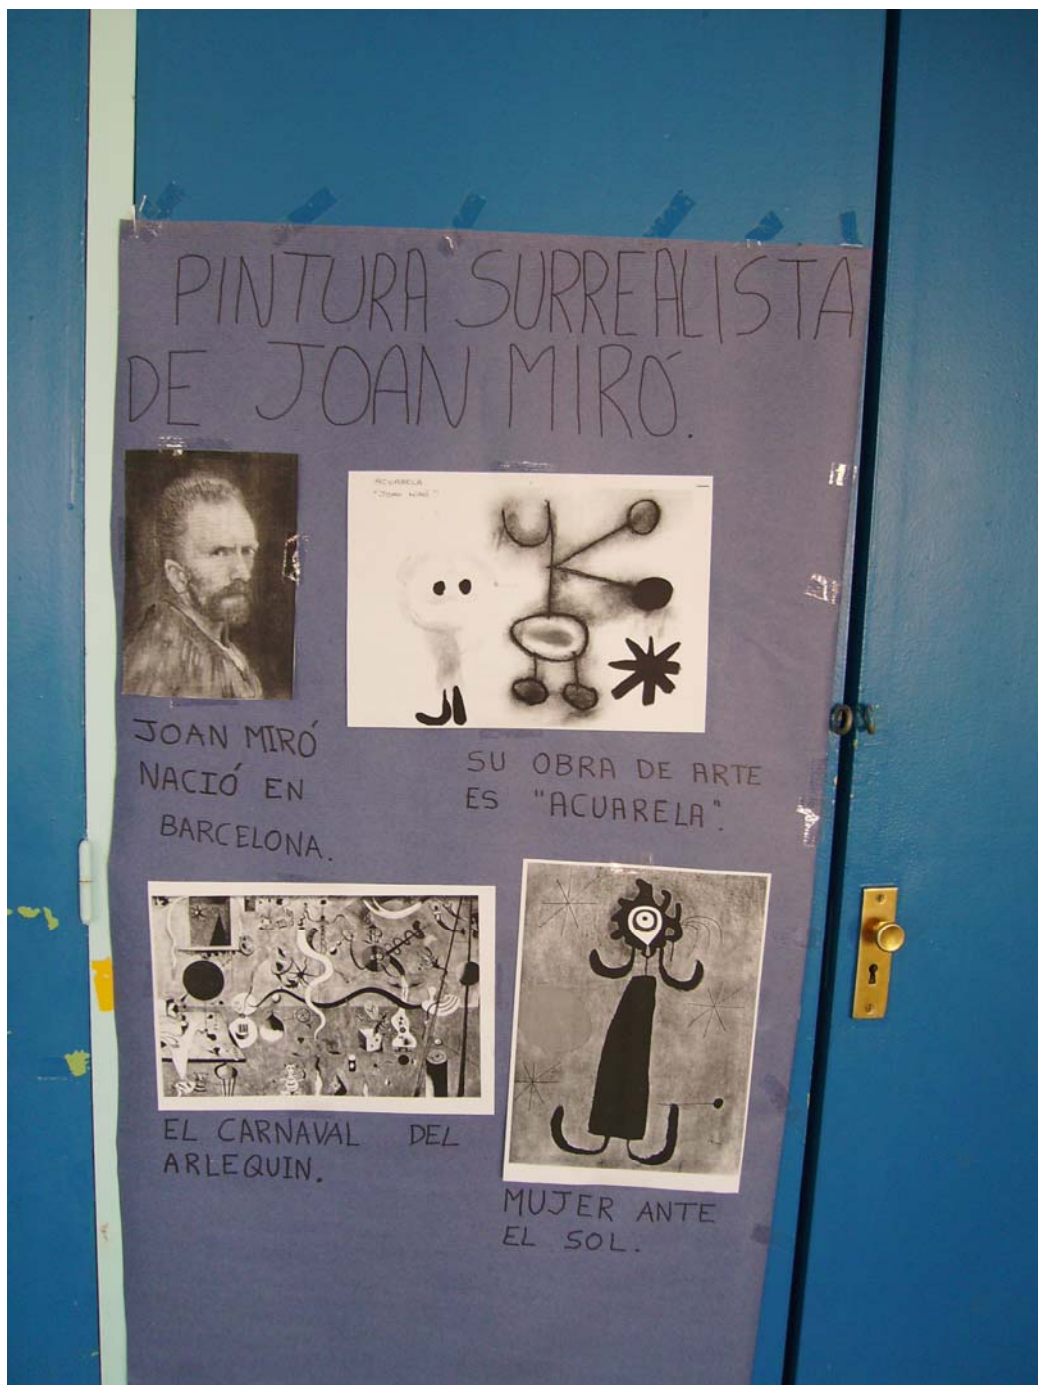 PINTURA SURREALISTA
DE JOAN MIRÓ.
ACUARELA
"JOAN MIRÓ"
JOAN MIRÓ
NACIÓ EN
BARCELONA.
SU OBRA DE ARTE
ES "ACUARELA".
EL CARNAVAL DEL
ARLEQUIN.
MUJER ANTE
EL SOL.